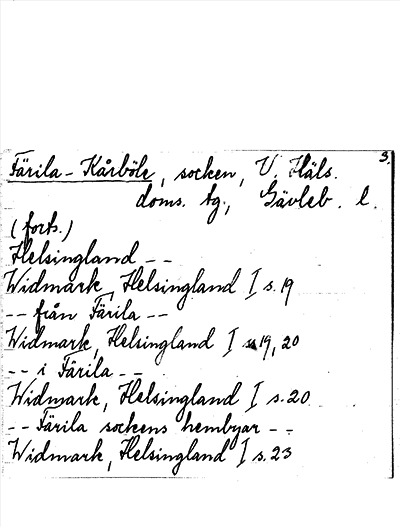 3.
Färila-Kårböle, socken, V. Häls.
doms. tg., Gävleb. l.
(forts.)
Helsingland --
Widmark, Helsingland I s. 19
-- från Färila --
Widmark, Helsingland I s. 19, 20
-- i Färila --
Widmark, Helsingland I s. 20
-- Färila sockens hembyar --
Widmark, Helsingland I s. 23